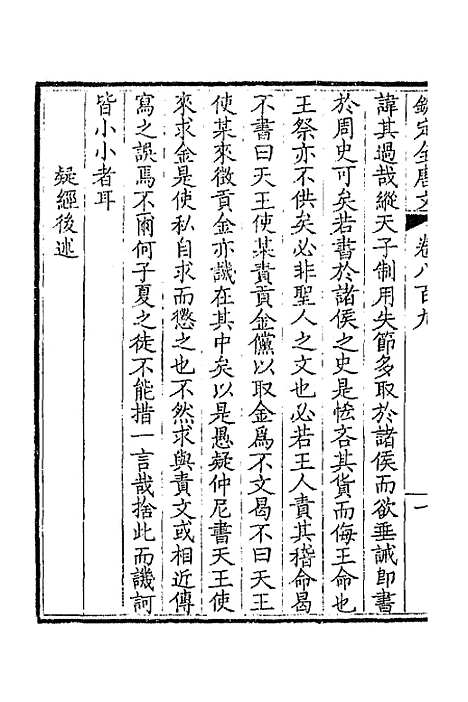 欽定全唐文 卷八百九 一
諱其過哉縱天子制用失節多取於諸侯而欲垂誡卽書
於周史可矣若書於諸侯之史是恡吝其貨而侮王命也
王祭亦不供矣必非聖人之文也必若王人責其稽命曷
不書曰天王使某責貢金儻以取金爲不文曷不曰天王
使某來徵貢金亦譏在其中矣以是愚疑仲尼書天王使
來求金是使私自求而懲之也不然求與責文或相近傳
寫之誤焉不爾何子夏之徒不能措一言哉捨此而譏訶
皆小小者耳
疑經後述